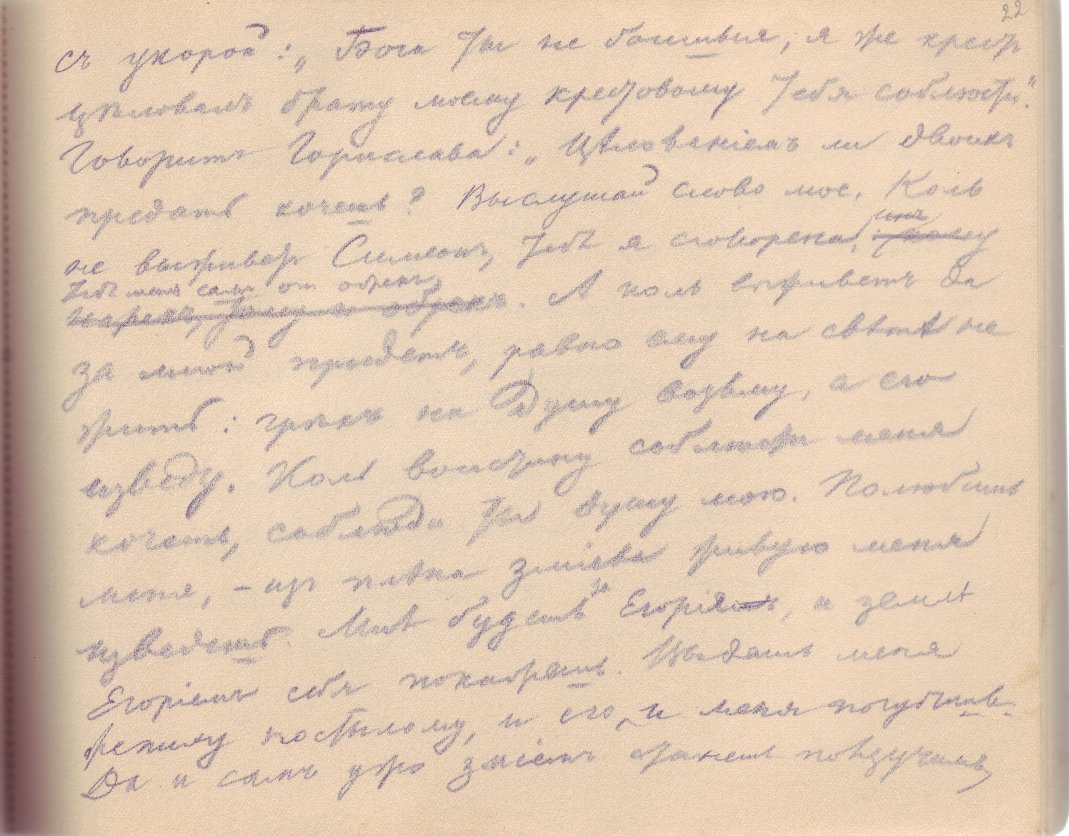 22
съ укоромъ: „Бога ты не боишься, я же крестъ
цѣловалъ брату моему крестовому тебя соблюсти."
Говоритъ Горислава: „Цѣлованіемъ ли двоихъ
предать хочешь? Выслушай слово мое. Коль
не выживетъ Симеонъ, тебѣ я сговорена,
тебѣ меня самъ онъ обрекъ
нарекъ, тому и обрекъ. А коль выживетъ да
за мной придетъ, равно ему на свѣтѣ не
жить: грѣхъ на душу возьму, а его
изведу. Коль воистину соблюсти меня
хочешь, соблюди ты душу мою. Полюбишь
меня, – изъ плѣна зміева живую меня
изведешь. Мнѣ будешь Егорій, и землѣ
Егоріемъ себя покажешь. Выдашь меня
мужу постылому, и его и меня погубишь.
Да и самъ ужо зміемъ станешь ползучимъ,